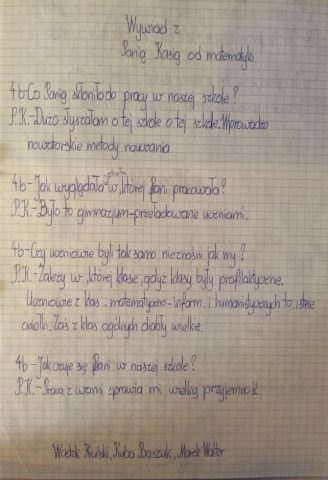 Wywiad z
Panią Kasią od matematyki
4b-Co Panią skłoniło do pracy w naszej szkole?
P.K.-Dużo słyszałam o tej szkole o tej szkole. Wprowadza
nowatorskie metody nauczania.
4b-Jak wyglądała szkoła w, której Pani pracowała?
P.K.-Było to gimnazjum-przeładowane uczniami.
4b-Czy uczniowie byli tak samo nieznośni jak my?
P.K.-Zależy w, której klasie, gdyż klasy były profilaktyczne.
Uczniowie z klas. matematyczno-inform. i humanistycznych to istne
aniołki. Zaś z klas ogólnych diabły wielkie.
4b-Jak czuje się Pani w naszej szkole?
P.K.-Praca z wami sprawia mi wielką przyjemność.
Kuba Marek Walter